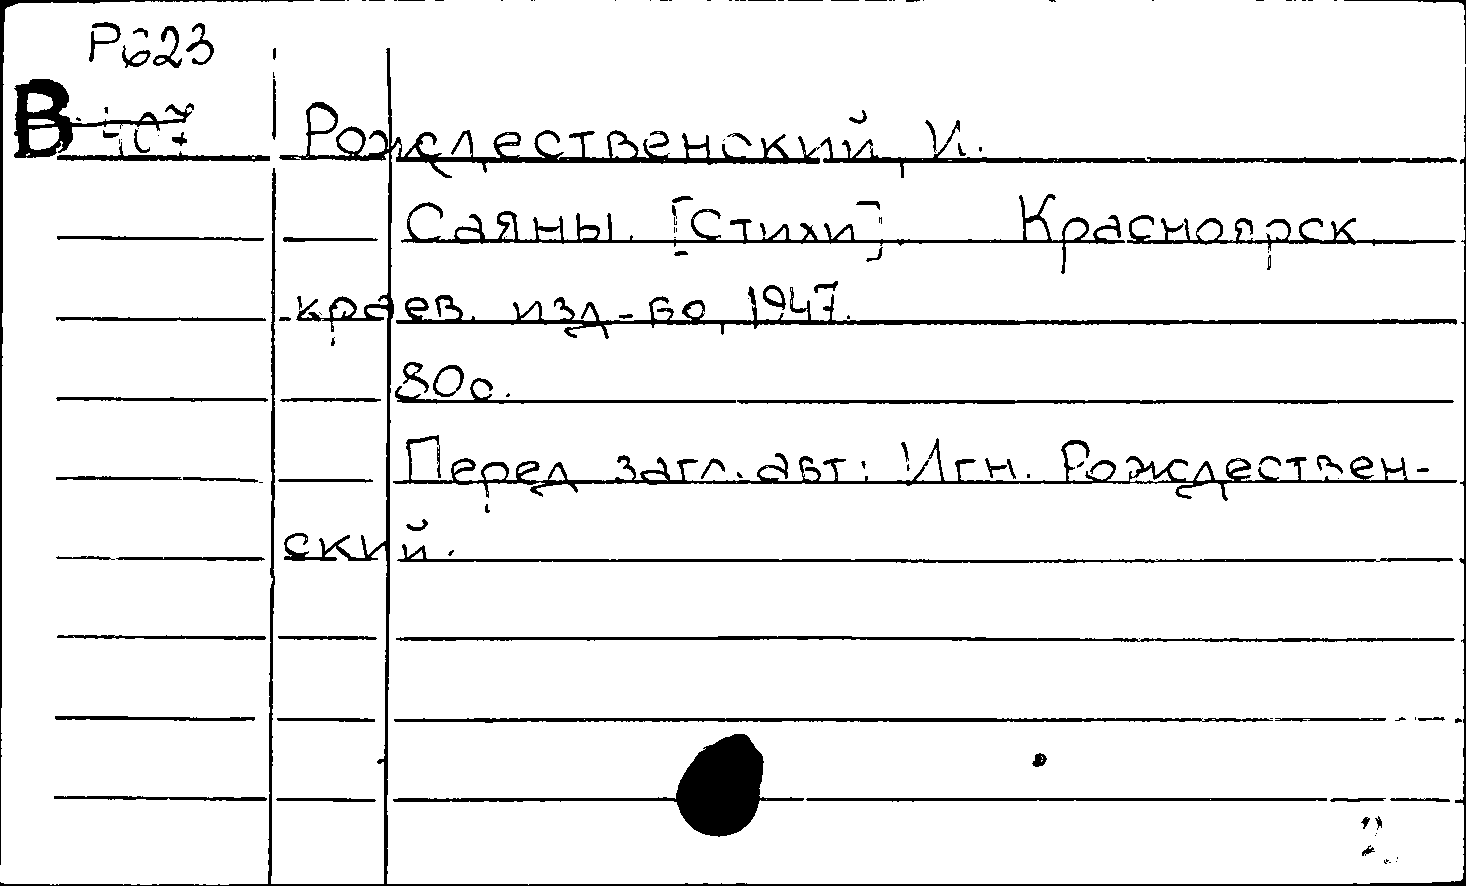 Р623
В 407
Рождественский, И.
Саяны. [Стихи]. Красноярск,
краев. изд-во, 1947.
80с.
Перед загл. авт: Игн. Рождествен-
ский.
2